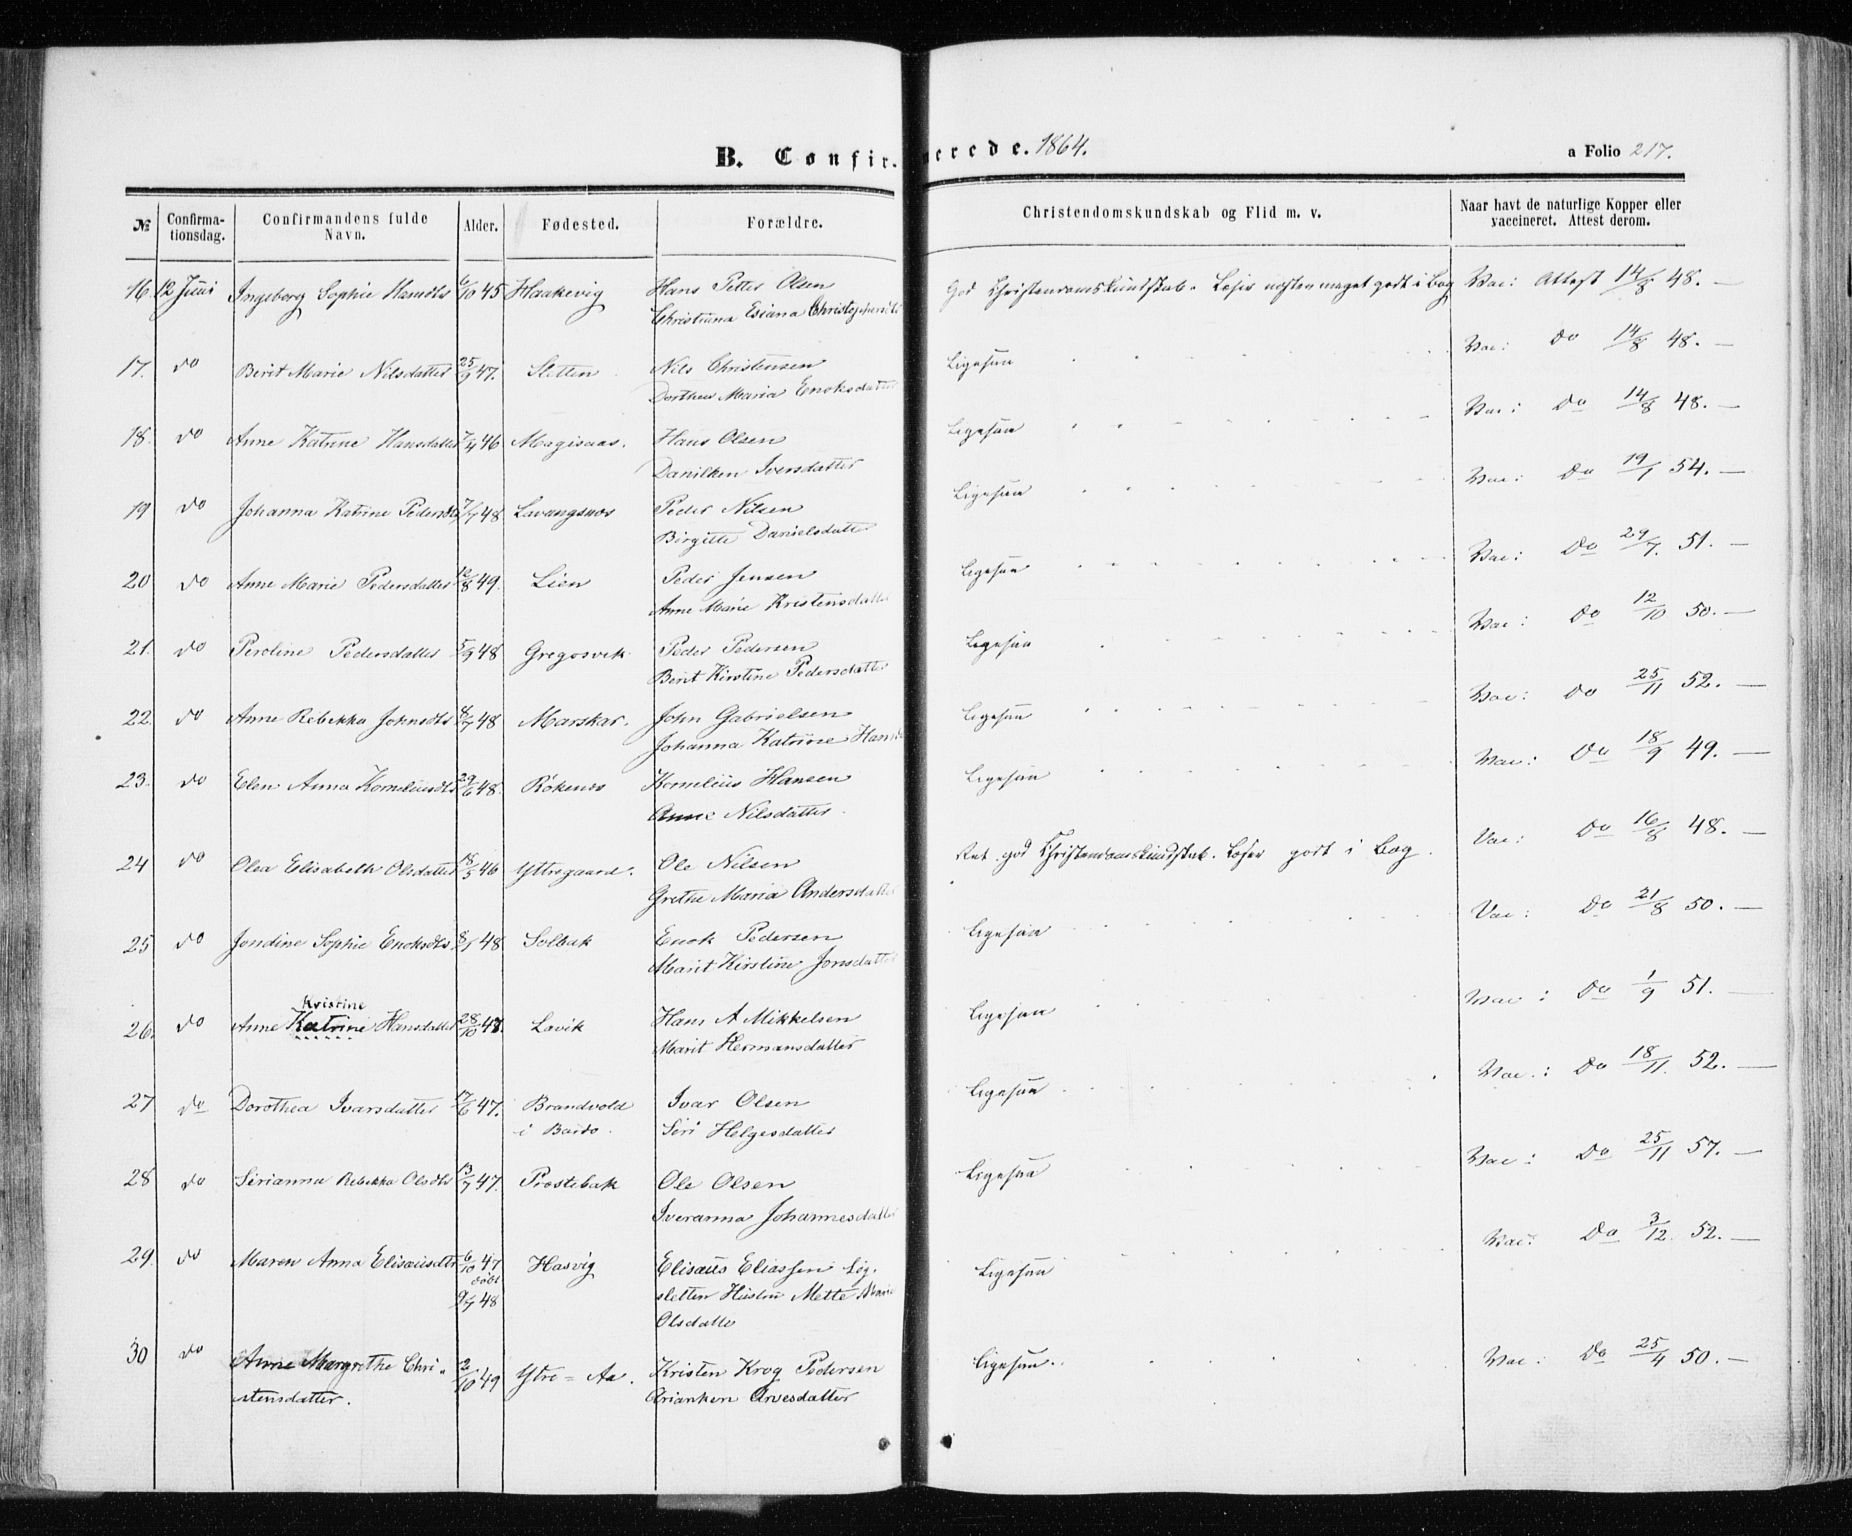 B. Confir. merede. 1864.
a Folio 217.
№ Confirma-tionsdag. Confirmandens fulde Navn. Alder. Fødested. Forældre. Christendomskundskab og Flid m. v. Naar havt de naturlige Kopper eller vaccineret. Attest derom.
16. 12 Juni Ingeborg Sophie Hansdtr 6/10 45 Haakevig Hans Petter Olsen God Christendomskundskab. Læser næsten meget godt i Bog Vac: Attest 14/8 48. —
Christiana Esiana Christophersdtr
17. do Berit Marie Nilsdatter 25/9 47. Sletten Nils Christensen Ligesaa Vac: Do 14/8 48. —
Dorthea Maria Enoksdatter
18. do Anne Katrine Hansdatter 7/4 46 Magisaas. Hans Olsen Ligesaa Vac: Do 14/8 48. —
Danilken Iversdatter
19 do Johanna Katrine Pedersdtr 7/7 48 Lavangsnes Peder Nilsen Ligesaa Vac: Do 19/1 54. —
Birgitte Danielsdatter
20 do Anne Marie Pedersdatter 12/8 49. Lien Peder Jensen Ligesaa Vac: Do 29/7. 51. —
Anne Marie Kristensdatter
21. do Peroline Pedersdatter 5/9 48 Gregosvik Peder Pedersen Ligesaa Vac: Do 12/10 50. —
Berit Kirstine Pedersdatter
22. do Anne Rebekka Johnsdtr 8/7 48 Marskar. John Gabrielsen Ligesaa Vac: Do 25/11 52. —
Johanna Katrine Hansd
23. do Elen Anna Korneliusdtr 29/6 48. Rökenes Kornelius Hansen Ligesaa Vac: Do 18/9 49. —
Anne Nilsdatter.
24 do Olea Elisabeth Olsdatter 18/5 46 Yttregaard. Ole Nilsen Ret god Christendomskundskab. Læser godt i Bog. Vac: Do 16/8 48. —
Grethe Maria Andersdatter
25 do Jondine Sophie Enoksdtr 8/1 48 Solbak Enok Pedersen Ligesaa Vac: Do 21/8 50. —
Marit Kirstine Jonsdatter
Kristine
26. do Anne Katrine Hansdatter 28/10 48. Lavik Hans A Mikkelsen Ligesaa Vac: Do 1/9 51. —
Marit Hermansdatter
27 do Dorothea Ivarsdatter 17/6 47. Brandvold Ivar Olsen Ligesaa Vac.: Do 18/11. 52. —
i Bardo. Siri Helgesdatter
28 do Sirianna Rebekka Olsdtr 13/7 47. Prestebak Ole Olsen Ligesaa Vac: Do 25/11 57. —
Iveranna Johannesdatter
29. do Maren Anna Elisæusdtr 6/10 47 Hasvig Elisæus Eliassen Løg- Ligesaa Vac: Do 3/12. 52. —
døbt 9/7 48 sletten Hustru Mette Marie
Olsdatter
30 do Anne Margrethe Chri- 2/10 49 Ytre = Aa. Kristen Krog Pedersen Ligesaa. Vac: Do 25/4 50. —
stensdatter. Arianken Arvesdatter